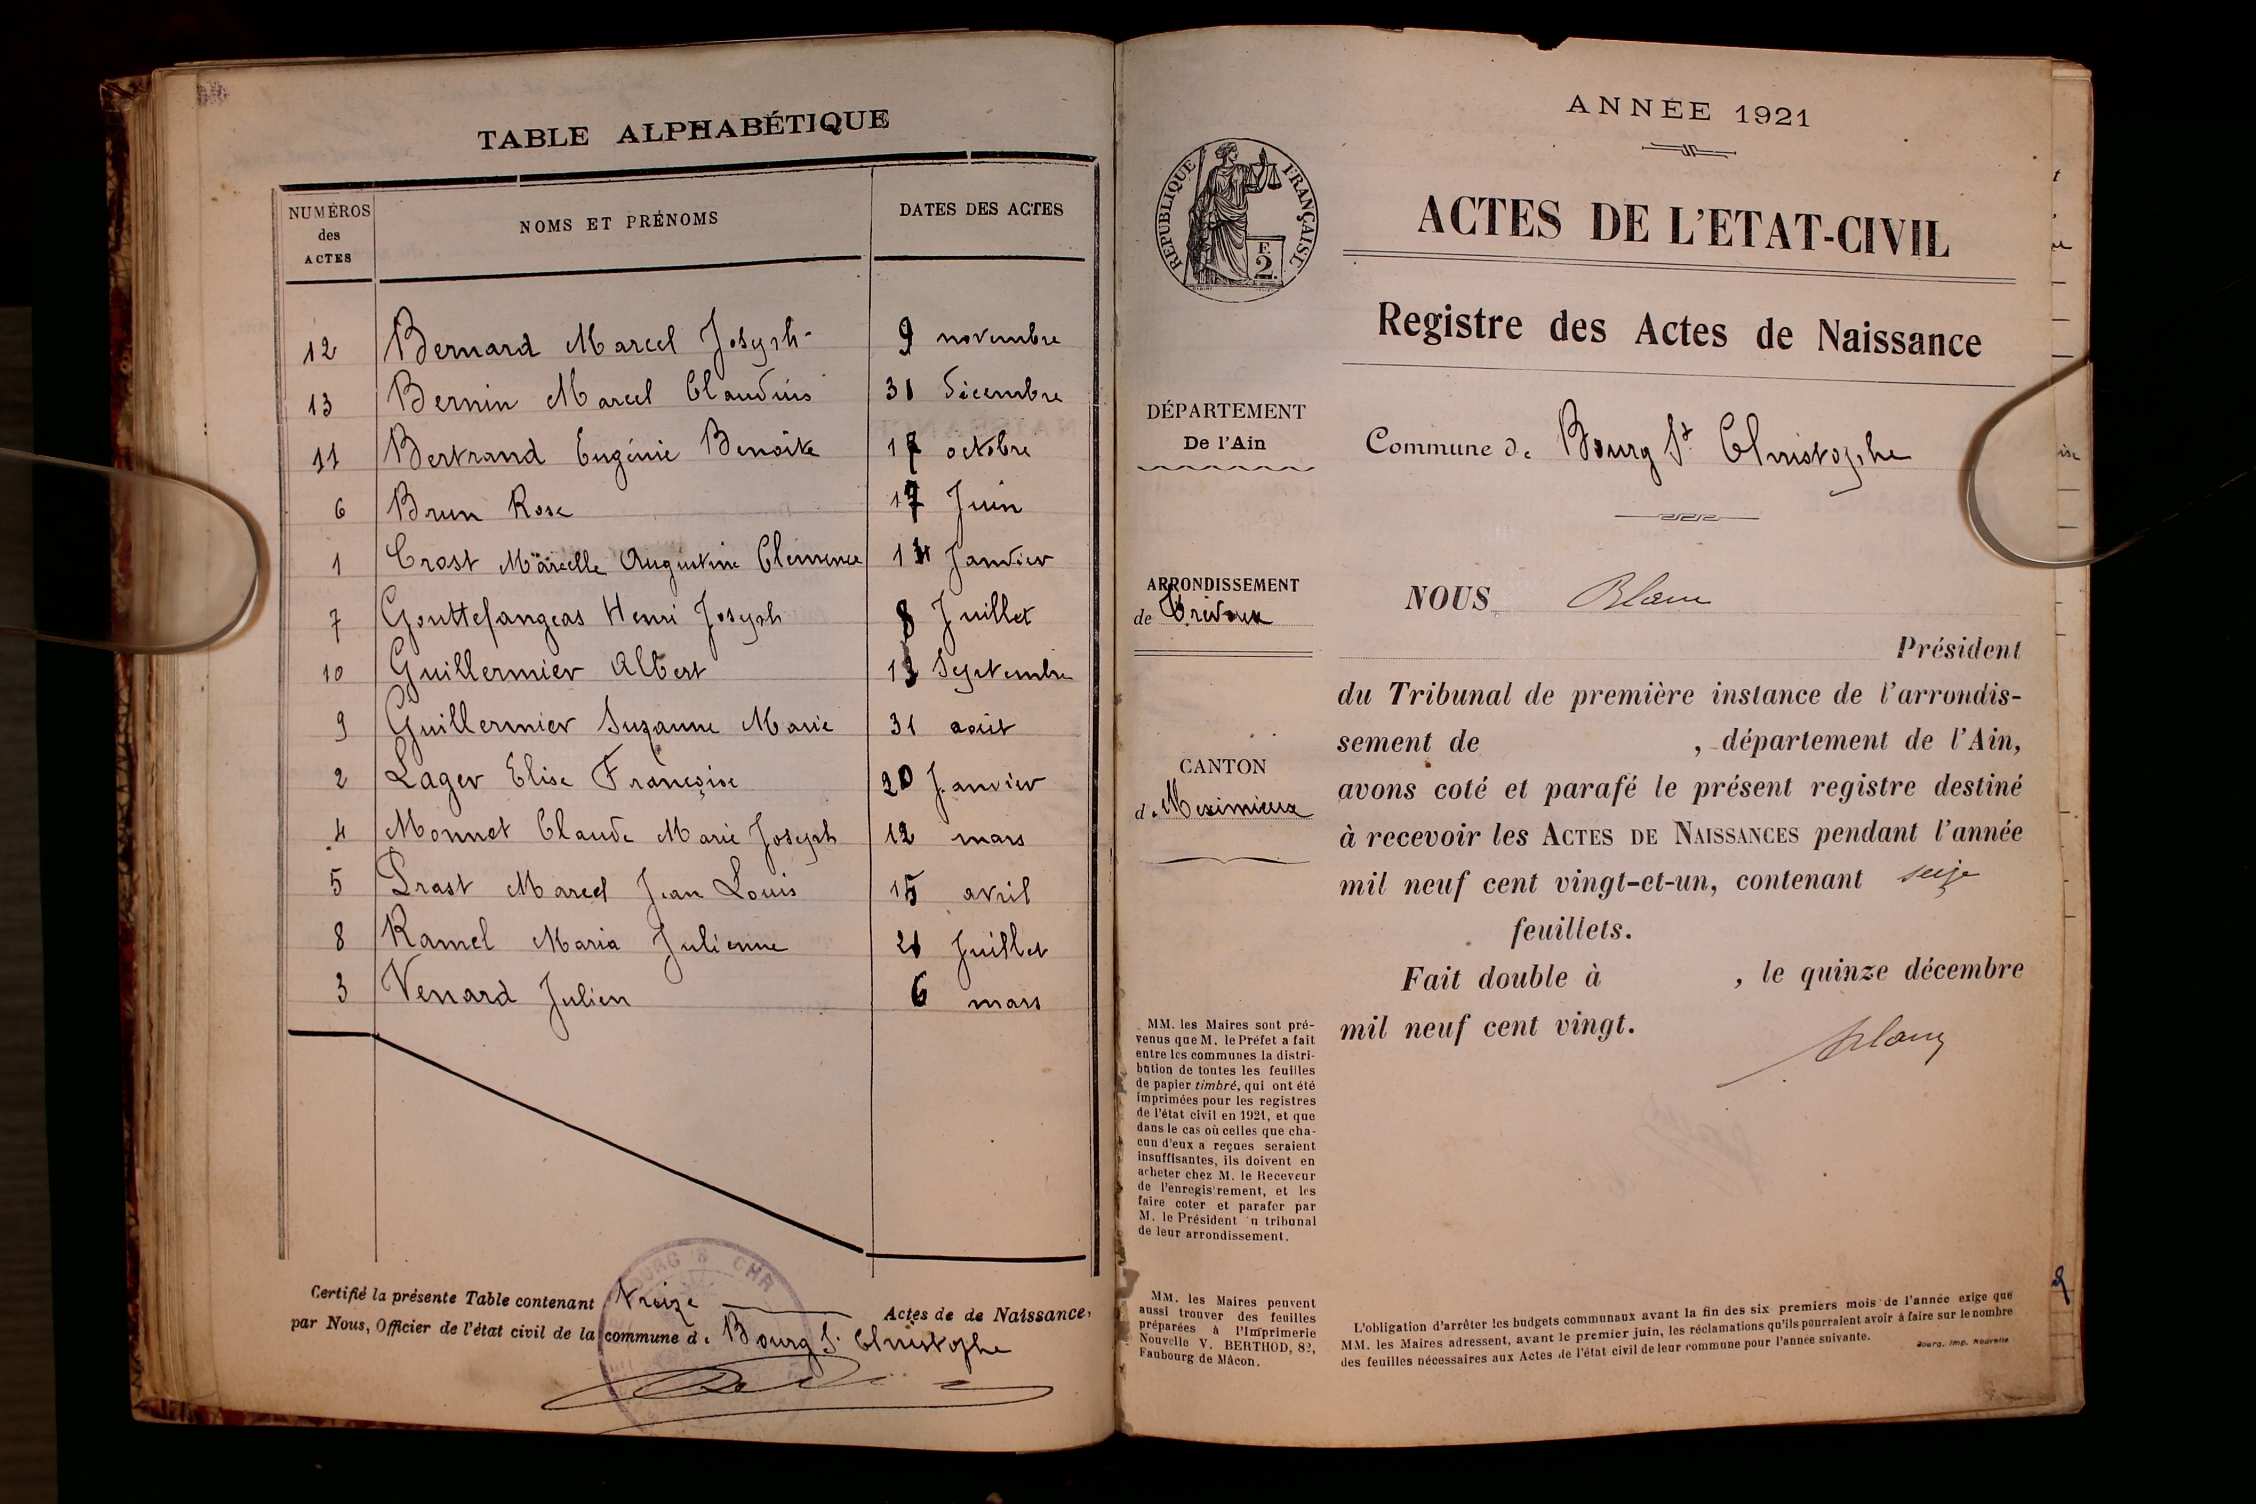 TABLE ALPHABÉTIQUE
NUMÉROS des ACTES
NOMS ET PRÉNOMS
DATES DES ACTES
12 Bernard Marcel Joseph 9 novembre
13 Bernin Marcel Claudius 31 Décembre
11 Bertrand Eugénie Benoîte 17 octobre
6 Brun Rose 17 Juin
1 Crost Marcelle Augustine Clemence Janvier
7 Gouttefangeas Henri Joseph 8 Juillet
10 Guillermier Albert Septembre
9 Guillermier Suzanne Marie 31 août
2 Lager Elise Françoise 20 Janvier
4 Monnet Claude Marie Joseph 12 mars
5 Prast Marcel Jean Louis 15 avril
8 Ramel Maria Julienne 21 Juillet
3 Venard Julien 6 mars
Certifié la présente Table contenant treize Actes de de Naissance,
par Nous, Officier de l'état civil de la commune de Bourg St Christophe
BOURG St CHR
ANNÉE 1921
RÉPUBLIQUE FRANÇAISE
F.
2
ACTES DE L'ETAT-CIVIL
Registre des Actes de Naissance
DÉPARTEMENT
De l'Ain
Commune de Bourg St Christophe
ARRONDISSEMENT
de Trévoux
CANTON
de Meximieux
NOUS Blanc
Président
du Tribunal de première instance de l'arrondis-
sement de , département de l'Ain,
avons coté et parafé le présent registre destiné
à recevoir les ACTES DE NAISSANCES pendant l'année
mil neuf cent vingt-et-un, contenant seize
feuillets.
Fait double à , le quinze décembre
mil neuf cent vingt.
Blanc
MM. les Maires sont pré-
venus que M. le Préfet a fait
entre les communes la distri-
bution de toutes les feuilles
de papier timbré, qui ont été
imprimées pour les registres
de l'état civil en 1921, et que
dans le cas où celles que cha-
cun d'eux a reçues seraient
insuffisantes, ils doivent en
acheter chez M. le Receveur
de l'enregistrement, et les
faire coter et parafer par
M. le Président u tribunal
de leur arrondissement.
MM. les Maires peuvent
aussi trouver des feuilles
préparées à l'Imprimerie
Nouvelle V. BERTHOD, 82,
Faubourg de Mâcon.
L'obligation d'arrêter les budgets communaux avant la fin des six premiers mois de l'année exige que
MM. les Maires adressent, avant le premier juin, les réclamations qu'ils pourraient avoir à faire sur le nombre
des feuilles nécessaires aux Actes de l'état civil de leur commune pour l'année suivante.
Bourg, Imp. Nouvelle